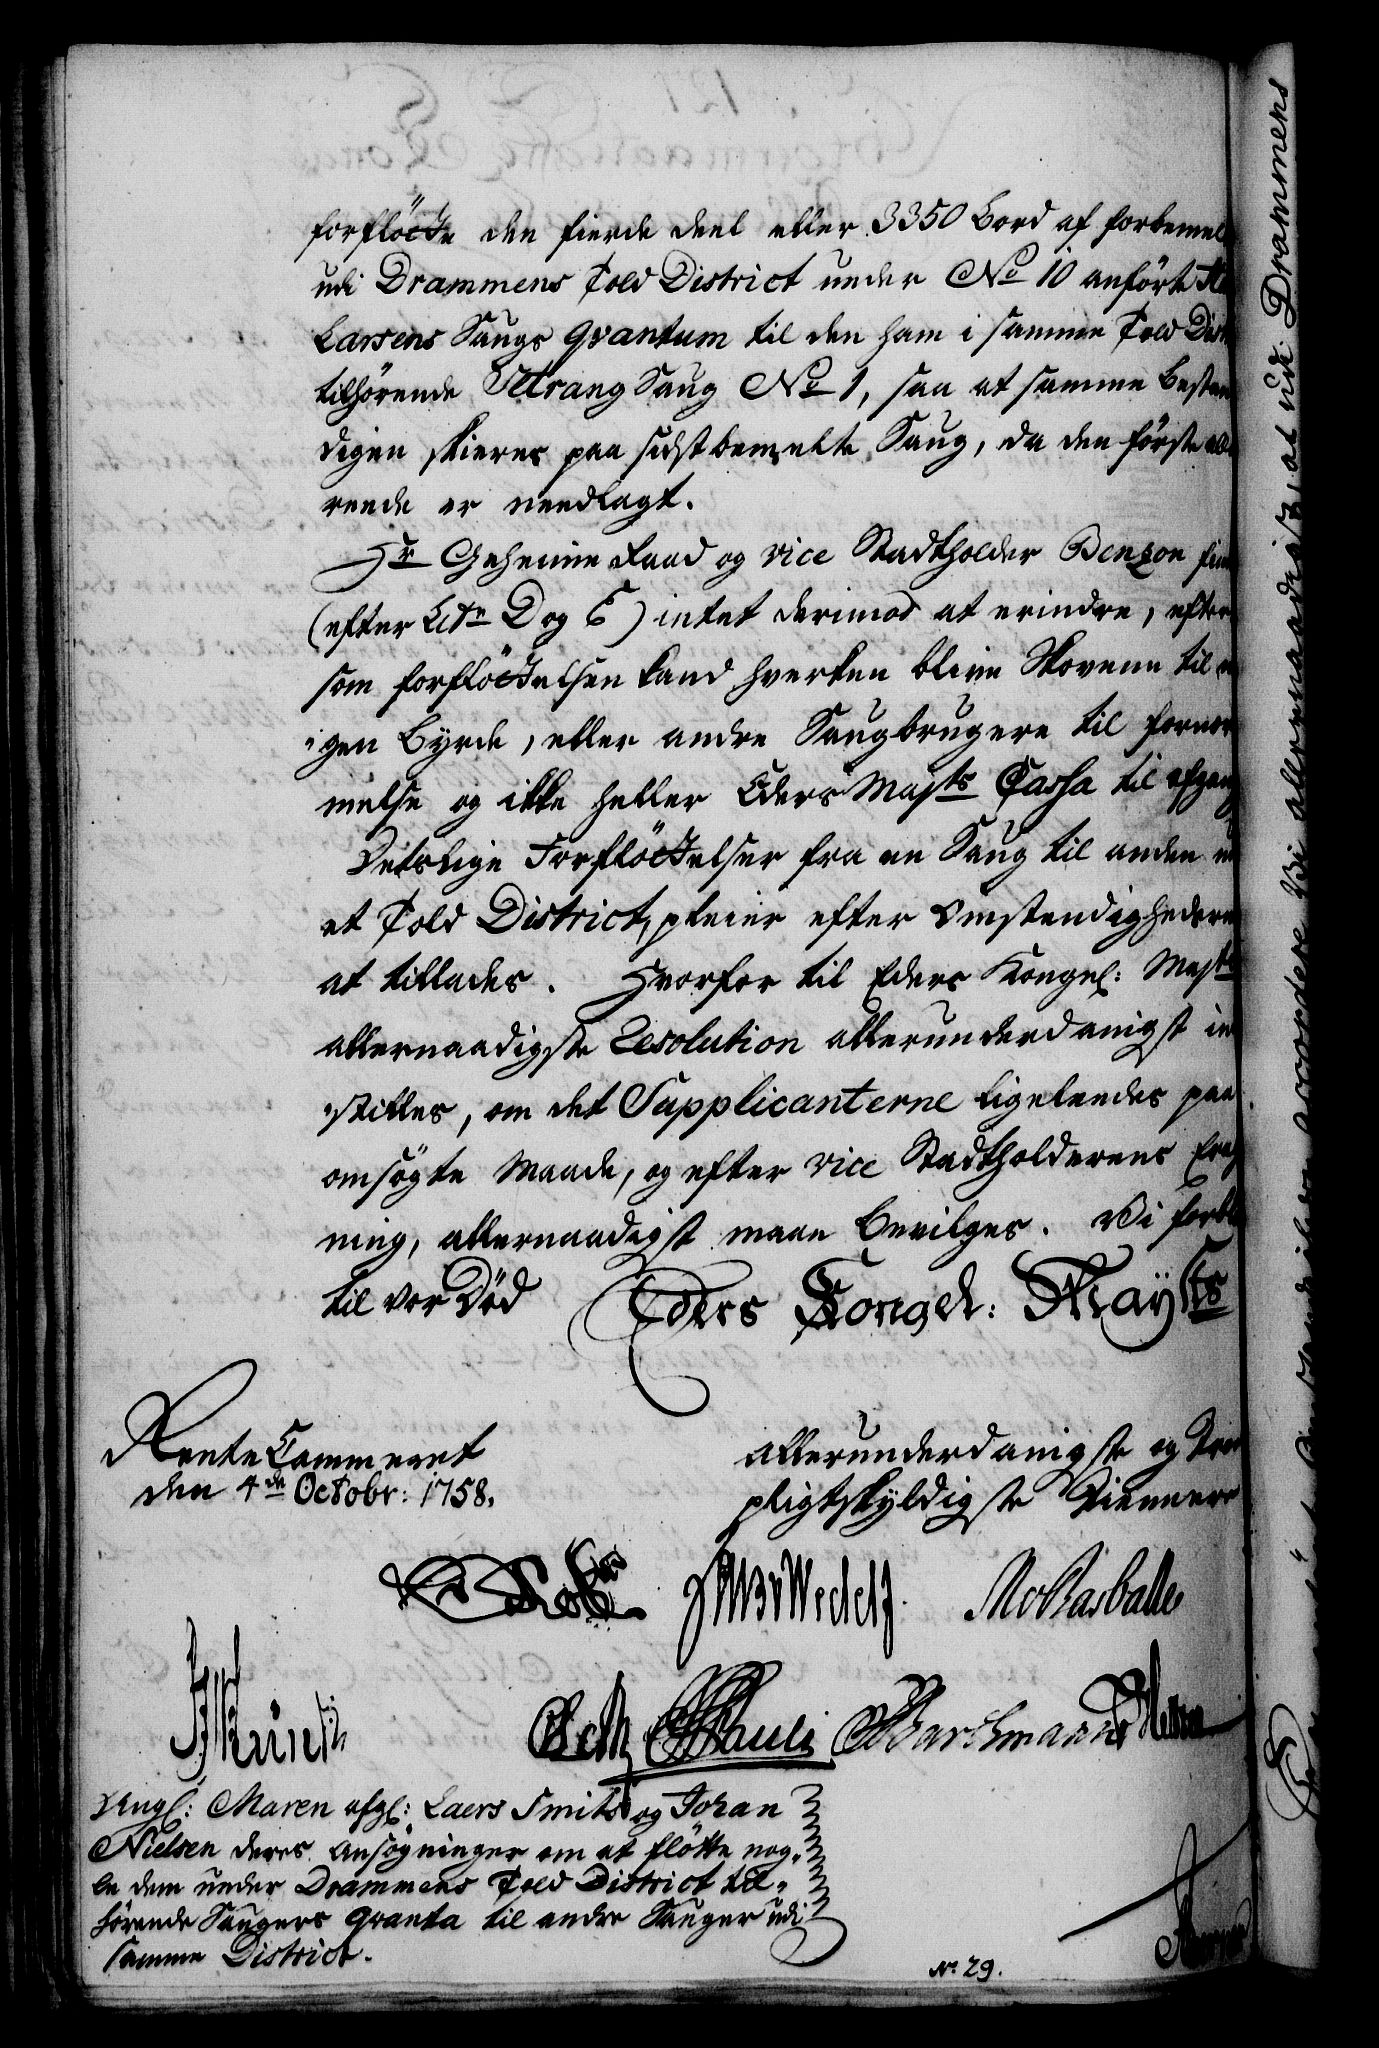 forflötte den fierde deel eller 3350 Bord af forbemel
udi Drammens Told District under No 10 anförte
Larsens Saugs qvantum til den ham i samme Told Dist
tilhörende Saug No 1, saa at samme bestan
digen skieres paa sidstbemelte Saug, da den förste alle
reede er needlagt.
Hr Geheime Raad og vice Stadtholder Benzon fin
(efter Litr D og E) intet derimod at erindre, efter
som forflöttelsen kand hverken blive Skovene til
igen Byrde, eller andre Saugbrugere til fornær
melse og ikke heller Eders Majts Cassa til afgang
Detslige Forflöttelser fra en Saug til anden
et Told District, pleier efter Omstendighederne
at tillades. Hvorfor til Eders Kongel: Majts
allernaadigste Resolution allerunderdanigst in
stilles, om det Supplicanterne ligeleedes paa
omsögte Maade, og efter vice Stadtholderens Erag
ning, allernaadigst maae bevilges. Vi forbl
til vor Död Eders Kongel: Mayts
Rente Cammeret
den 4de Octobr: 1758.
allerunderdanigste og Troe
pligtskyldigste Tiennere
Wedelf.
Pauli Barthmann
Angl: Maren afgl: Laers Smits og Johan
Nielsen deres Ansögninger om at flötte nog-
le dem under Drammens Told District til-
hörende Saugers qvanta til andre Sauger udi
samme District.
No. 29.
Vi allernaadigst, at udi Drammens